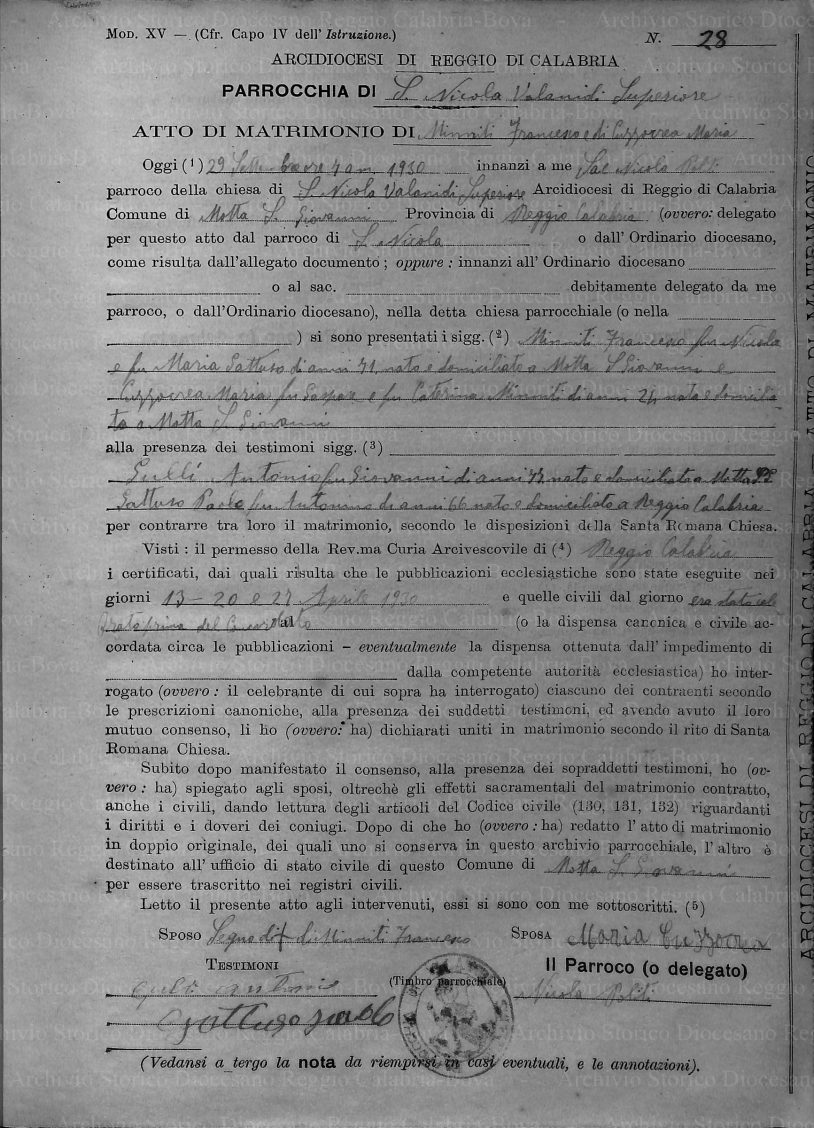 MOD. XV — (Cfr. Capo IV dell' Istruzione.)
N. 28
ARCIDIOCESI DI REGGIO DI CALABRIA
PARROCCHIA DI S. Nicola Valanidi Superiore
ATTO DI MATRIMONIO DI Minniti Francesco e di Cuzzocrea Maria
Oggi (1) 29 1930 innanzi a me Sac Nicola Politi
parroco della chiesa di S. Nicola Valanidi Superiore Arcidiocesi di Reggio di Calabria
Comune di Motta S. Giovanni Provincia di Reggio Calabria (ovvero: delegato
per questo atto dal parroco di S. Nicola o dall' Ordinario diocesano,
come risulta dall'allegato documento; oppure: innanzi all' Ordinario diocesano
o al sac. debitamente delegato da me
parroco, o dall'Ordinario diocesano), nella detta chiesa parrocchiale (o nella
) si sono presentati i sigg. (2) Minniti Francesco fu Nicola
e fu Maria Gattuso di anni 71 nato e domiciliato a Motta S Giovanni e
Cuzzocrea Maria fu Gaspare e fu Caterina Minniti di anni 24 nata e domicilia
ta a Motta S. Giovanni
alla presenza dei testimoni sigg. (3)
Gullì Antonio fu Giovanni di anni 73 nato e domiciliato a Motta S.
Gattuso Paolo fu Antonino di anni 66 nato e domiciliato a Reggio Calabria
per contrarre tra loro il matrimonio, secondo le disposizioni della Santa Romana Chiesa.
Visti : il permesso della Rev.ma Curia Arcivescovile di (4) Reggio Calabria
i certificati, dai quali risulta che le pubblicazioni ecclesiastiche sono state eseguite nei
giorni 13 - 20 e 27 Aprile 1930 e quelle civili dal giorno era stato cele
brato prima del Concordato al (o la dispensa canonica e civile ac-
cordata circa le pubblicazioni - eventualmente la dispensa ottenuta dall' impedimento di
dalla competente autorità ecclesiastica) ho inter-
rogato (ovvero : il celebrante di cui sopra ha interrogato) ciascuno dei contraenti secondo
le prescrizioni canoniche, alla presenza dei suddetti testimoni, ed avendo avuto il loro
mutuo consenso, li ho (ovvero: ha) dichiarati uniti in matrimonio secondo il rito di Santa
Romana Chiesa.
Subito dopo manifestato il consenso, alla presenza dei sopraddetti testimoni, ho (ov-
vero : ha) spiegato agli sposi, oltrechè gli effetti sacramentali del matrimonio contratto,
anche i civili, dando lettura degli articoli del Codice civile (130, 131, 132) riguardanti
i diritti e i doveri dei coniugi. Dopo di che ho (ovvero : ha) redatto l' atto di matrimonio
in doppio originale, dei quali uno si conserva in questo archivio parrocchiale, l' altro è
destinato all' ufficio di stato civile di questo Comune di Motta S. Giovanni
per essere trascritto nei registri civili.
Letto il presente atto agli intervenuti, essi si sono con me sottoscritti. (5)
SPOSO Segno di † di Minniti Francesco SPOSA Maria Cuzzocrea
TESTIMONI
Il Parroco (o delegato)
(Timbro parrocchiale)
Gulli Antonio
Nicola Politi
Gattuso Paolo
(Vedansi a tergo la nota da riempirsi in casi eventuali, e le annotazioni).